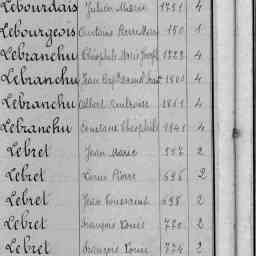 Lebourdais Julien Marie 1751 4
Lebourgeois Pierre Marie 1
Lebranchu Théophile Marie Joseph 1223 4
Lebranchu Jean Baptiste 1800 4
Lebranchu Albert Ambroise 1861 4
Lebranchu Constant Théophile 1941 4
Lebret Jean Marie 557 2
Lebret Louis Pierre 696 2
Lebret Jean Toussaint 698 2
Lebret François Louis 770 2
Lebret François Louis 774 2